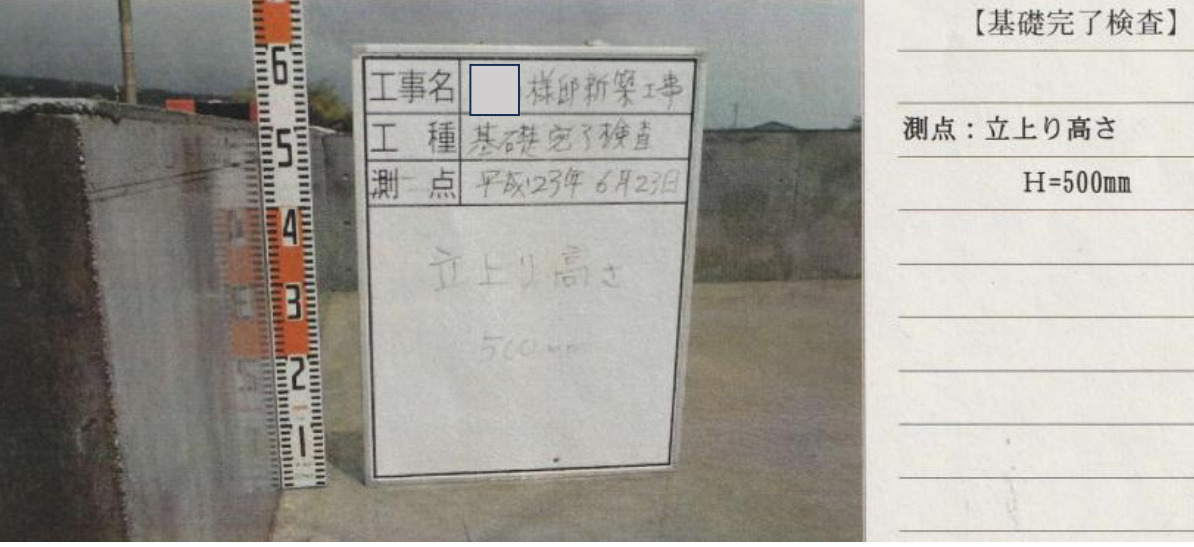 6
5
4
3
2
1
工事名 様邸新築工事
工種 基礎完了検査
測点 平成23年6月23日
立上り高さ
500mm
【基礎完了検査】
測点：立上り高さ
H=500mm